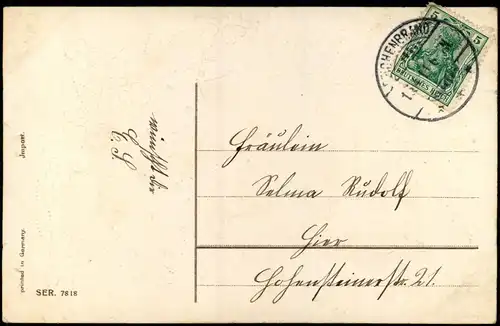 5 5
DEUTSCHES REICH
wünscht Ihr
E. S.
Fräulein
Selma Rudolf
Hier
Hohensteinerstr. 21.
Import.
printed in Germany.
SER. 7818